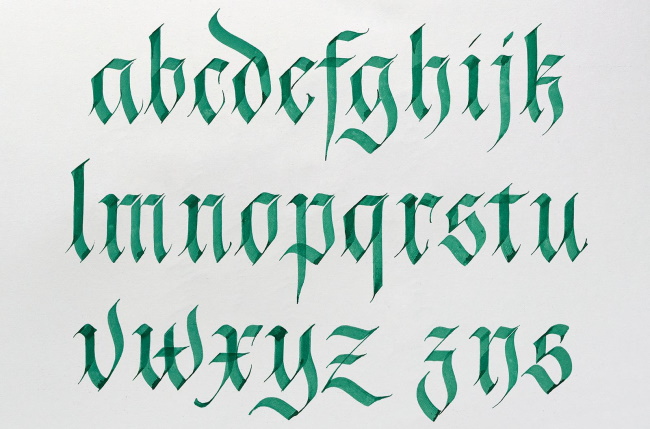 abcdefghijk
lmnopqrstu
vwxyz zys